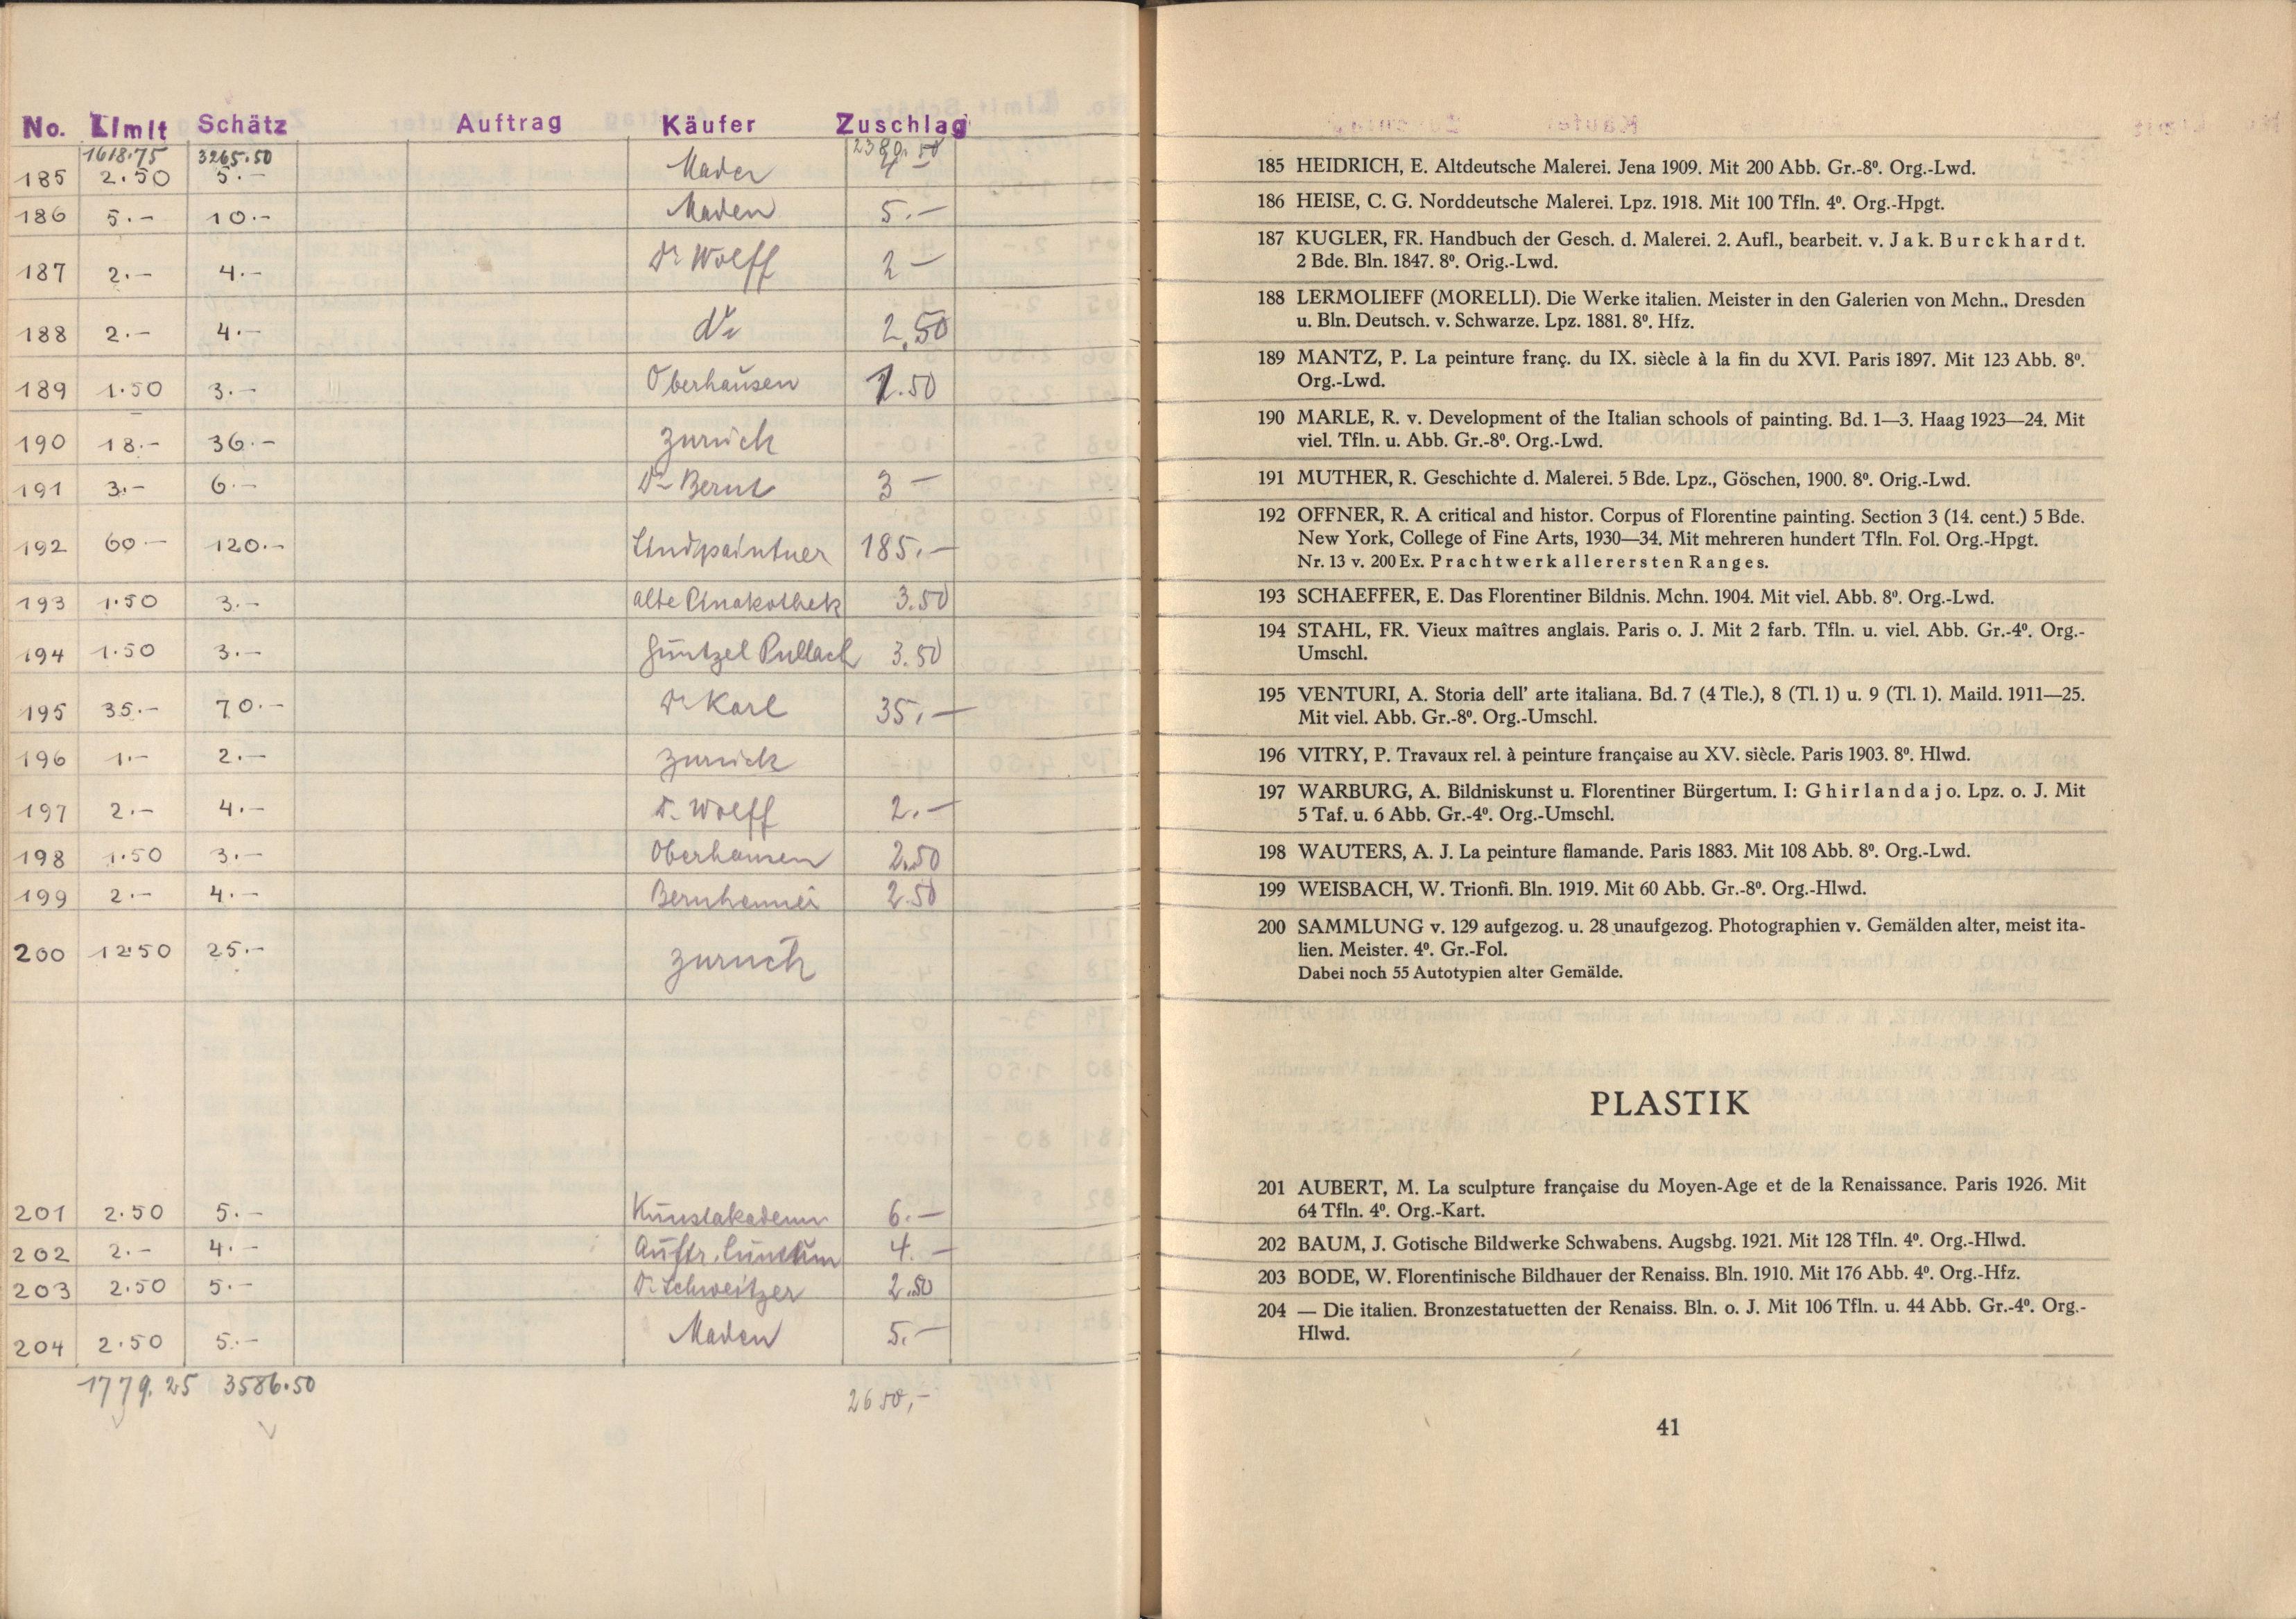 No. Limit Schätz Auftrag Käufer Zuschlag
1618.75 3265.50 2380.50
185 2.50 5.- Maden 4 -
186 5.- 10.- Maden 5.-
187 2.- 4.- Dr Wolff 2 -
188 2.- 4.- do 2.50
189 1.50 3.- Oberhausen 1.50
190 18.- 36.- zurück
191 3.- 6.- Dr Bernt 3 -
192 60 - 120.- Lindpaintner 185.-
193 1.50 3.- alte Pinakothek 3.50
194 1.50 3.- Güntzel Pullach 3.50
195 35.- 70.- Dr Karl 35.-
196 1.- 2.- zurück
197 2.- 4.- Dr. Wolff 2.-
198 1.50 3.- Oberhausen 2.50
199 2.- 4.- Bernheimer 2.50
200 12.50 25.- zurück
201 2.50 5.- Kunstakademie 6.-
202 2.- 4.- Auftr. 4.-
203 2.50 5.- Dr. Schweitzer 2.50
204 2.50 5.- Maden 5.-
1779.25 3586.50
2650,-
185 HEIDRICH, E. Altdeutsche Malerei. Jena 1909. Mit 200 Abb. Gr.-8⁰. Org.-Lwd.
186 HEISE, C. G. Norddeutsche Malerei. Lpz. 1918. Mit 100 Tfln. 4⁰. Org.-Hpgt.
187 KUGLER, FR. Handbuch der Gesch. d. Malerei. 2. Aufl., bearbeit. v. Jak. Burckhardt.
2 Bde. Bln. 1847. 8⁰. Orig.-Lwd.
188 LERMOLIEFF (MORELLI). Die Werke italien. Meister in den Galerien von Mchn., Dresden
u. Bln. Deutsch. v. Schwarze. Lpz. 1881. 8⁰. Hfz.
189 MANTZ, P. La peinture franç. du IX. siècle à la fin du XVI. Paris 1897. Mit 123 Abb. 8⁰.
Org.-Lwd.
190 MARLE, R. v. Development of the Italian schools of painting. Bd. 1—3. Haag 1923—24. Mit
viel. Tfln. u. Abb. Gr.-8⁰. Org.-Lwd.
191 MUTHER, R. Geschichte d. Malerei. 5 Bde. Lpz., Göschen, 1900. 8⁰. Orig.-Lwd.
192 OFFNER, R. A critical and histor. Corpus of Florentine painting. Section 3 (14. cent.) 5 Bde.
New York, College of Fine Arts, 1930—34. Mit mehreren hundert Tfln. Fol. Org.-Hpgt.
Nr. 13 v. 200 Ex. Prachtwerk allerersten Ranges.
193 SCHAEFFER, E. Das Florentiner Bildnis. Mchn. 1904. Mit viel. Abb. 8⁰. Org.-Lwd.
194 STAHL, FR. Vieux maîtres anglais. Paris o. J. Mit 2 farb. Tfln. u. viel. Abb. Gr.-4⁰. Org.-
Umschl.
195 VENTURI, A. Storia dell' arte italiana. Bd. 7 (4 Tle.), 8 (Tl. 1) u. 9 (Tl. 1). Maild. 1911—25.
Mit viel. Abb. Gr.-8⁰. Org.-Umschl.
196 VITRY, P. Travaux rel. à peinture française au XV. siècle. Paris 1903. 8⁰. Hlwd.
197 WARBURG, A. Bildniskunst u. Florentiner Bürgertum. I: Ghirlandajo. Lpz. o. J. Mit
5 Taf. u. 6 Abb. Gr.-4⁰. Org.-Umschl.
198 WAUTERS, A. J. La peinture flamande. Paris 1883. Mit 108 Abb. 8⁰. Org.-Lwd.
199 WEISBACH, W. Trionfi. Bln. 1919. Mit 60 Abb. Gr.-8⁰. Org.-Hlwd.
200 SAMMLUNG v. 129 aufgezog. u. 28 unaufgezog. Photographien v. Gemälden alter, meist ita-
lien. Meister. 4⁰. Gr.-Fol.
Dabei noch 55 Autotypien alter Gemälde.
PLASTIK
201 AUBERT, M. La sculpture française du Moyen-Age et de la Renaissance. Paris 1926. Mit
64 Tfln. 4⁰. Org.-Kart.
202 BAUM, J. Gotische Bildwerke Schwabens. Augsbg. 1921. Mit 128 Tfln. 4⁰. Org.-Hlwd.
203 BODE, W. Florentinische Bildhauer der Renaiss. Bln. 1910. Mit 176 Abb. 4⁰. Org.-Hfz.
204 — Die italien. Bronzestatuetten der Renaiss. Bln. o. J. Mit 106 Tfln. u. 44 Abb. Gr.-4⁰. Org.-
Hlwd.
41